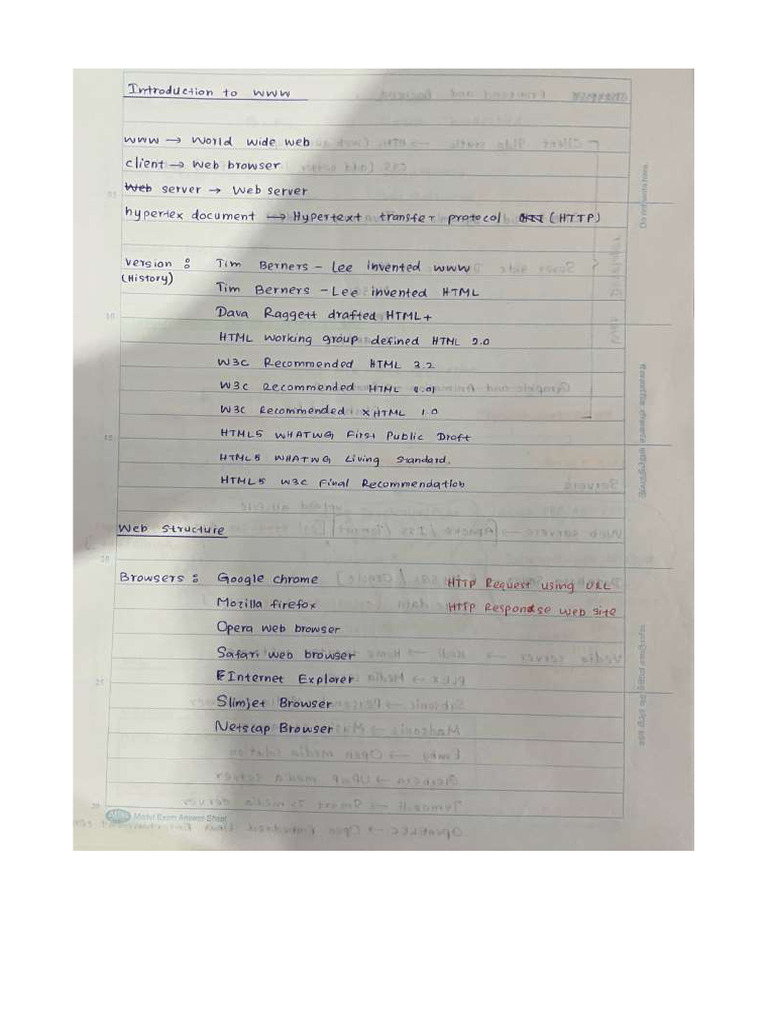 Introduction to WWW
WWW → World wide web
client → Web browser
Web server → Web server
hypertex document → Hypertext transfer protocol (HTTP)
version : Tim Berners - Lee invented WWW
(History)
Tim Berners - Lee invented HTML
Dava Raggett drafted HTML+
HTML working group defined HTML 2.0
W3C Recommended HTML 3.2
W3C Recommended HTML 4.01
W3C Recommended XHTML 1.0
HTML5 WHATWG First Public Draft
HTML5 WHATWG Living Standard.
HTML5 W3C Final Recommendation
Web Structure
Browsers : Google chrome HTTP Request using URL
Mozilla firefox HTTP Respondse web site
Opera web browser
Safari web browser
Internet Explorer
Slimjet Browser
Netscap Browser
Model Exam Answer Sheet